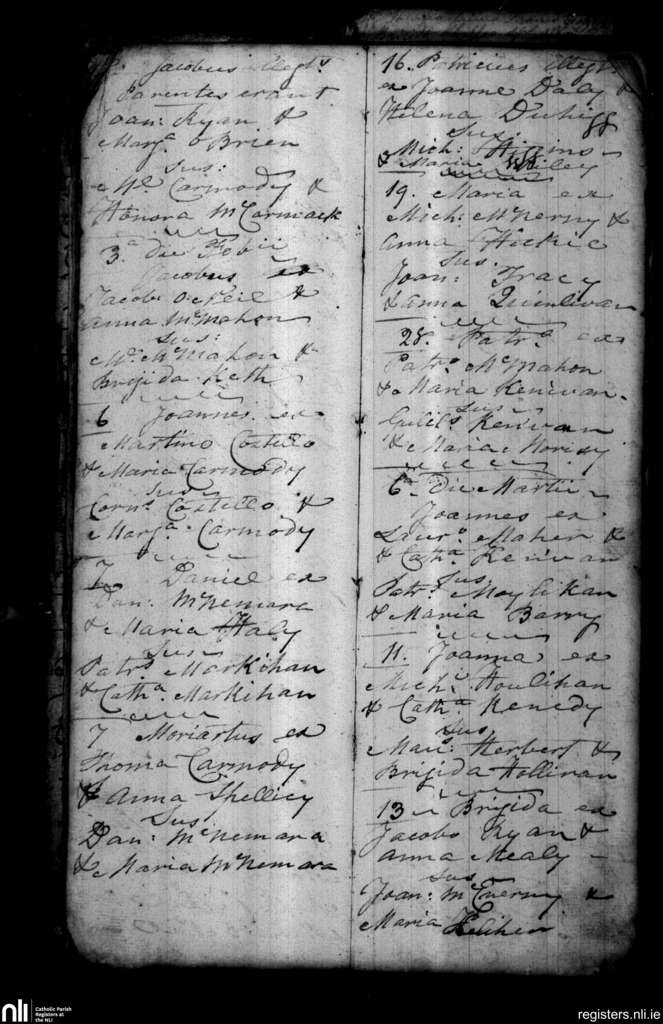 Jacobus illegts
Parentes erant
Joan: Ryan &
Marga O Brien
Sus:
Ml Carmody &
Honora McCormack
3a die Febii
Jacobus ex
Jacob: O Neil &
Anna McMahon
Sus:
Mc Mahon &
Brijida Keth
6 Joannes ex
Martino Costello
& Maria Carmody
Sus
Corns Costello &
Marja Carmody
7 Daniel ex
Dan: McNemara
& Maria Haly
Sus
Patrs Markihan
& Catha Markihan
7 Moriartus ex
Thoma Carmody
& Anna Shelliey
Sus
Dan: McNemara
& Maria McNemara
16. Patricius illegt
ex Joanne Daly &
Helena Duhigg
Sus:
Mich: Higgins
& Maria
19. Maria ex
Mich: McNerny &
Anna Hickie
Sus.
Joan: Tracy
& Anna Quinlivan
28. Patr. ex
Patr. McMahon
& Maria Kenivan
Sus
Guills Kenivan
& Maria Morisy
6a die Martii
Joannes ex
Laur. Maher &
& Catha Kenivan
Sus
Patrs Moylikan
& Maria Barry
11. Joanna ex
Mich: Houlihan
& Catha Kenedy
Sus
Mau: Herbert &
Brijida Hollivan
13 Brijida ex
Jacobo Ryan &
Anna Mealy
Sus
Joan: McEnerny &
Maria
nli
Catholic Parish
Registers at
the NLI
registers.nli.ie